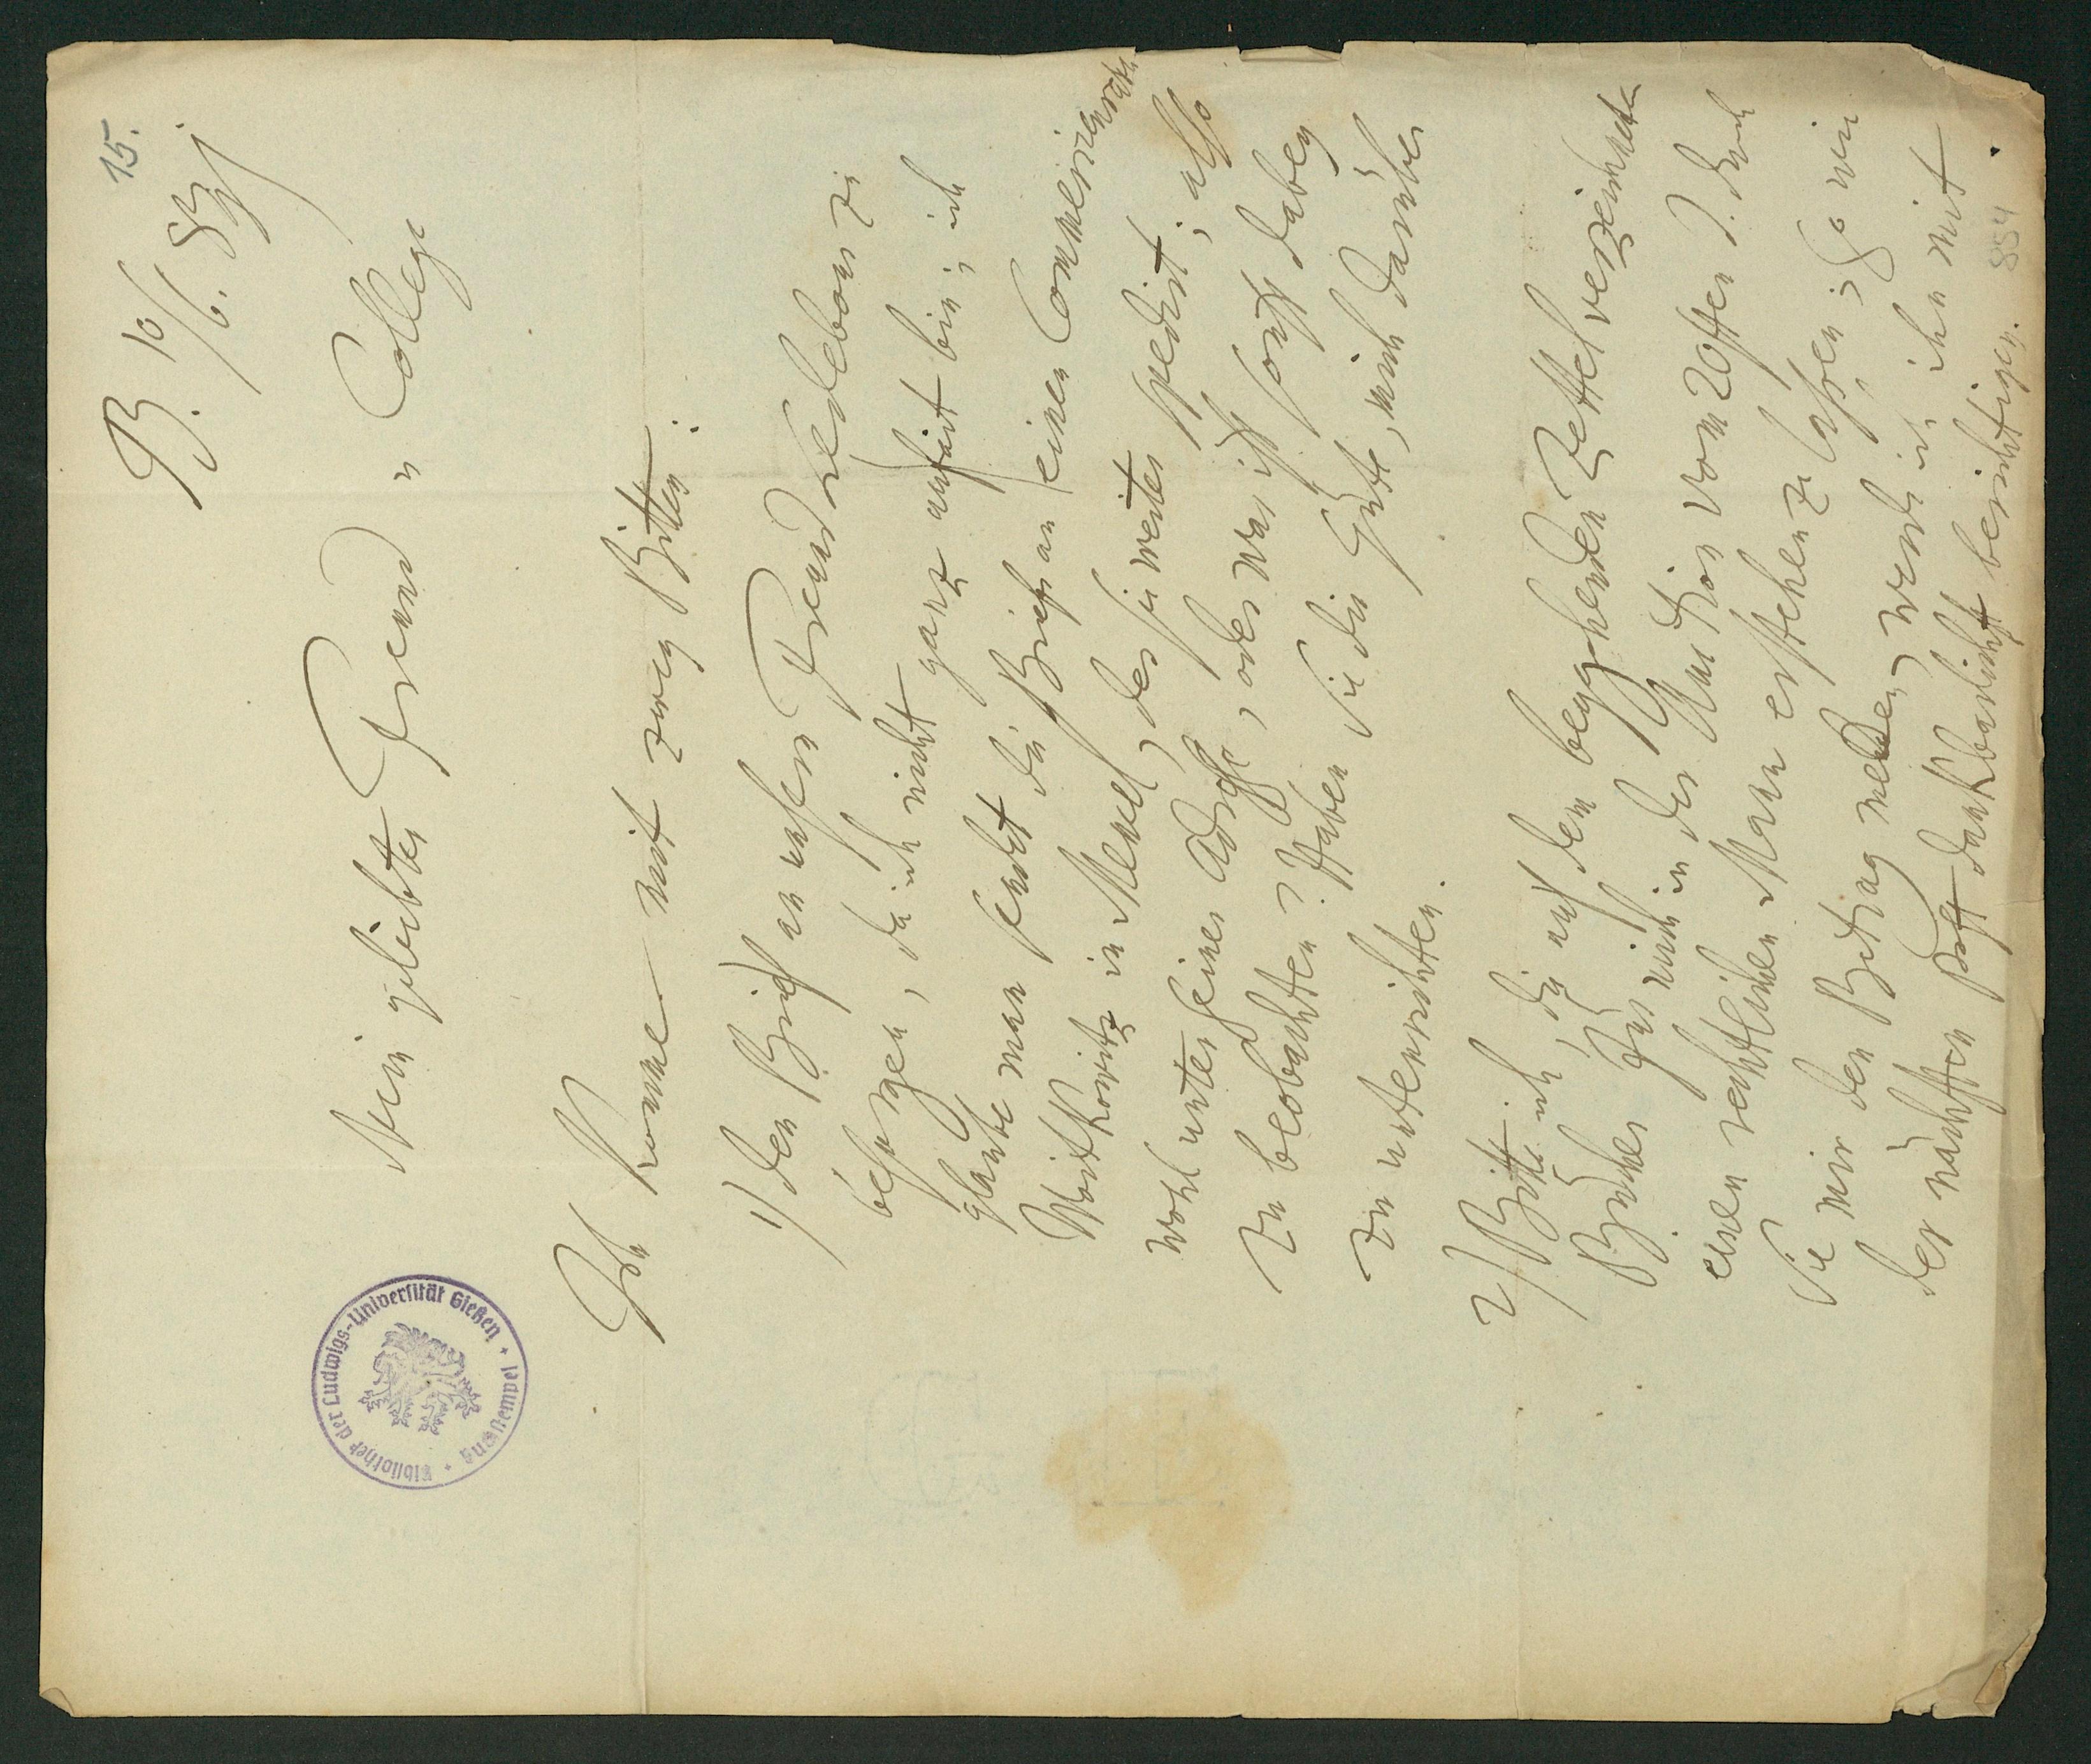 15.
B. 10/6. 83
Mein geliebter Freund u College
Ich komme mit zwey Bitten:
1) den Brief an unsern Freund Ledebour zu
besorgen, da ich nicht ganz au fait bin; ich
glaube man sendet die Briefe an einen Commerzienrath
in Memel, der sie weiter spedirt; also
wohl unter seiner Adresse, oder was ist sonst dabey
zu beobachten? Haben Sie die Güte, mich darüber
zu unterrichten.
2) Bitte ich, die auf dem beygehenden Zettel verzeichneten
Bücher für mich in der Auction vom 20sten J. durch
einen rechtlichen Mann erstehen zu laßen; So wie
Sie mir den Betrag melden, werde ich ihn mit
der nächsten Post dankbarlichst berichtigen.
884
Bibliothek der Ludwigs-Universität Gießen